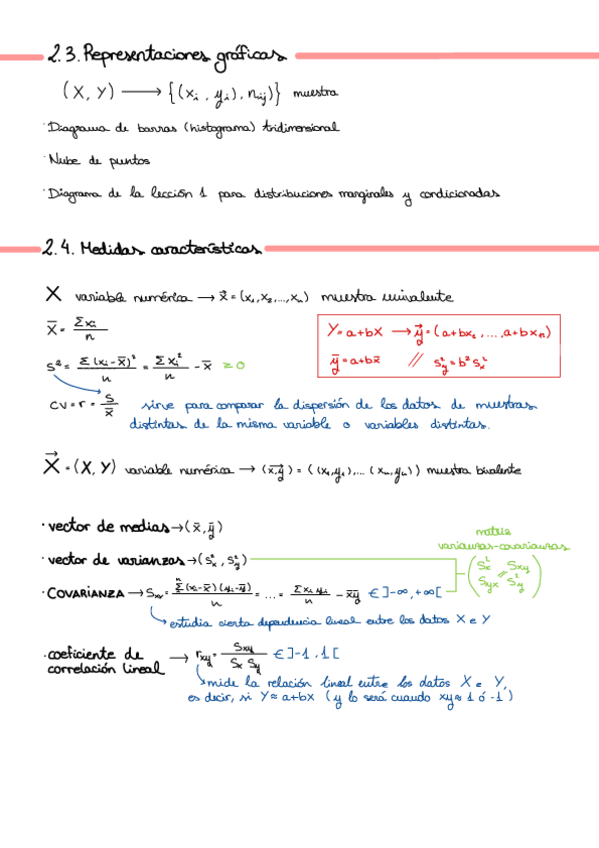 2.3. Representaciones gráficas
(X, Y) ⟶ {(xᵢ, yᵢ), nᵢⱼ)} muestra
· Diagrama de barras (histograma) tridimensional
· Nube de puntos
· Diagrama de la lección 1 para distribuciones marginales y condicionadas
2.4. Medidas características
X variable numérica → x⃗ = (x₁, x₂, ..., xₙ) muestra univalente
x̄ = Σxᵢ / n
Y = a+bX → y⃗ = (a+bx₁, ..., a+bxₙ)
ȳ = a+bx̄ // s²y = b² s²x
s² = Σ(xᵢ - x̄)² / n = Σxᵢ² / n - x̄ ≥ 0
CV = r = s / x̄ sirve para comparar la dispersión de los datos de muestras
distintas de la misma variable o variables distintas.
X⃗ = (X, Y) variable numérica → (x⃗,y⃗) = ((x₁,y₁), ... (xₙ,yₙ)) muestra bivalente
· vector de medias → (x̄, ȳ)
matriz
varianzas-covarianzas
· vector de varianzas → (s²x, s²y)
(s²x sxy // syx s²y)
· COVARIANZA → sxy = Σⁿ(xᵢ - x̄)(yᵢ - ȳ) / n = ... = Σxᵢyᵢ / n - x̄ȳ ∈ ]-∞, +∞[
estudia cierta dependencia lineal entre los datos X e Y
· coeficiente de
correlación lineal → rxy = sxy / sx sy ∈ ]-1, 1[
mide la relación lineal entre los datos X e Y,
es decir, si Y ≈ a+bX (y lo será cuando xy ≈ 1 ó -1)